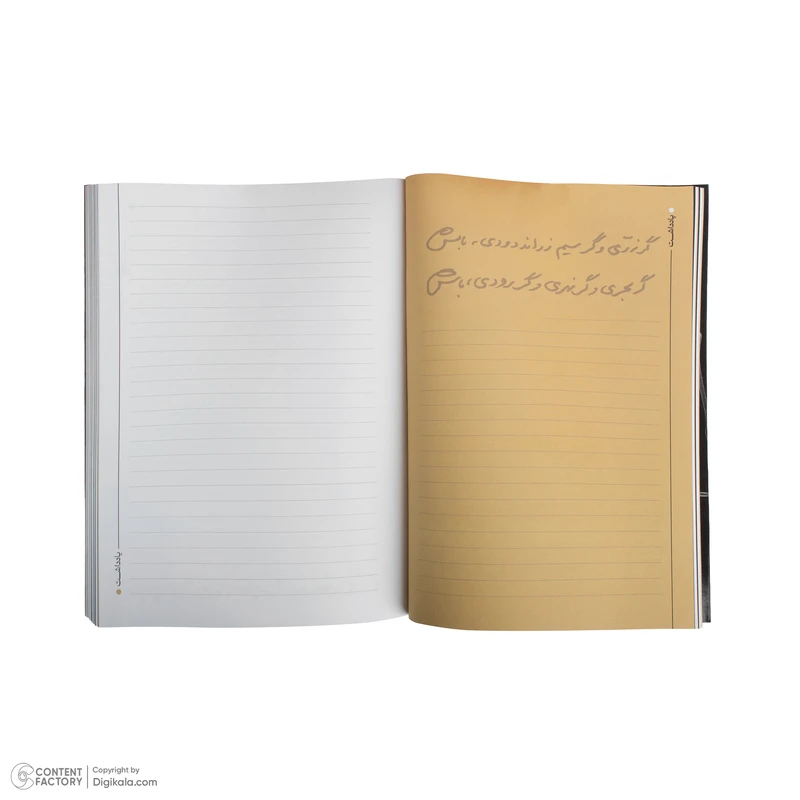 گر زرّی و گر سیم زراندودی، باش
گر بحری و گر نهری و گر رودی، باش
یادداشت
یادداشت
CONTENT FACTORY
Copyright by
Digikala.com